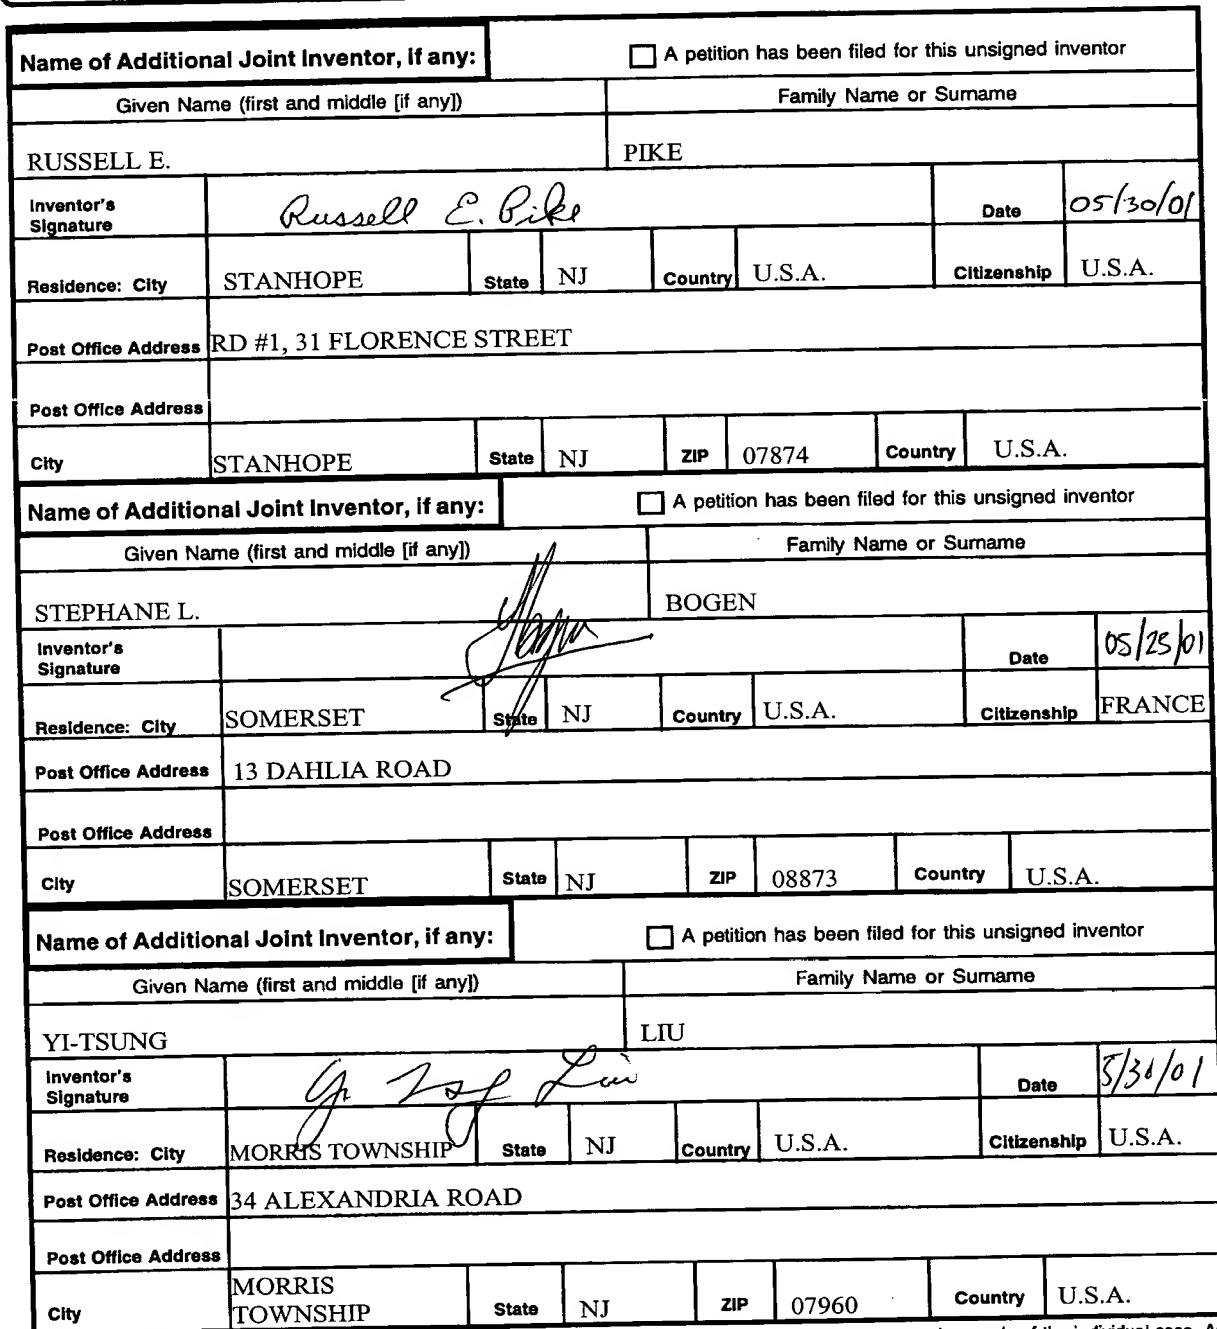 Name of Additional Joint Inventor, if any: A petition has been filed for this unsigned inventor
Given Name (first and middle [if any]) Family Name or Surname
RUSSELL E. PIKE
Inventor's Signature Russell E. Pike Date 05/30/01
Residence: City STANHOPE State NJ Country U.S.A. Citizenship U.S.A.
Post Office Address RD #1, 31 FLORENCE STREET
Post Office Address
City STANHOPE State NJ ZIP 07874 Country U.S.A.
Name of Additional Joint Inventor, if any: A petition has been filed for this unsigned inventor
Given Name (first and middle [if any]) Family Name or Surname
STEPHANE L. BOGEN
Inventor's Signature Date 05/25/01
Residence: City SOMERSET State NJ Country U.S.A. Citizenship FRANCE
Post Office Address 13 DAHLIA ROAD
Post Office Address
City SOMERSET State NJ ZIP 08873 Country U.S.A.
Name of Additional Joint Inventor, if any: A petition has been filed for this unsigned inventor
Given Name (first and middle [if any]) Family Name or Surname
YI-TSUNG LIU
Inventor's Signature Liu Date
Residence: City MORRIS TOWNSHIP State NJ Country U.S.A. Citizenship U.S.A.
Post Office Address 34 ALEXANDRIA ROAD
Post Office Address
City MORRIS TOWNSHIP State NJ ZIP 07960 Country U.S.A.